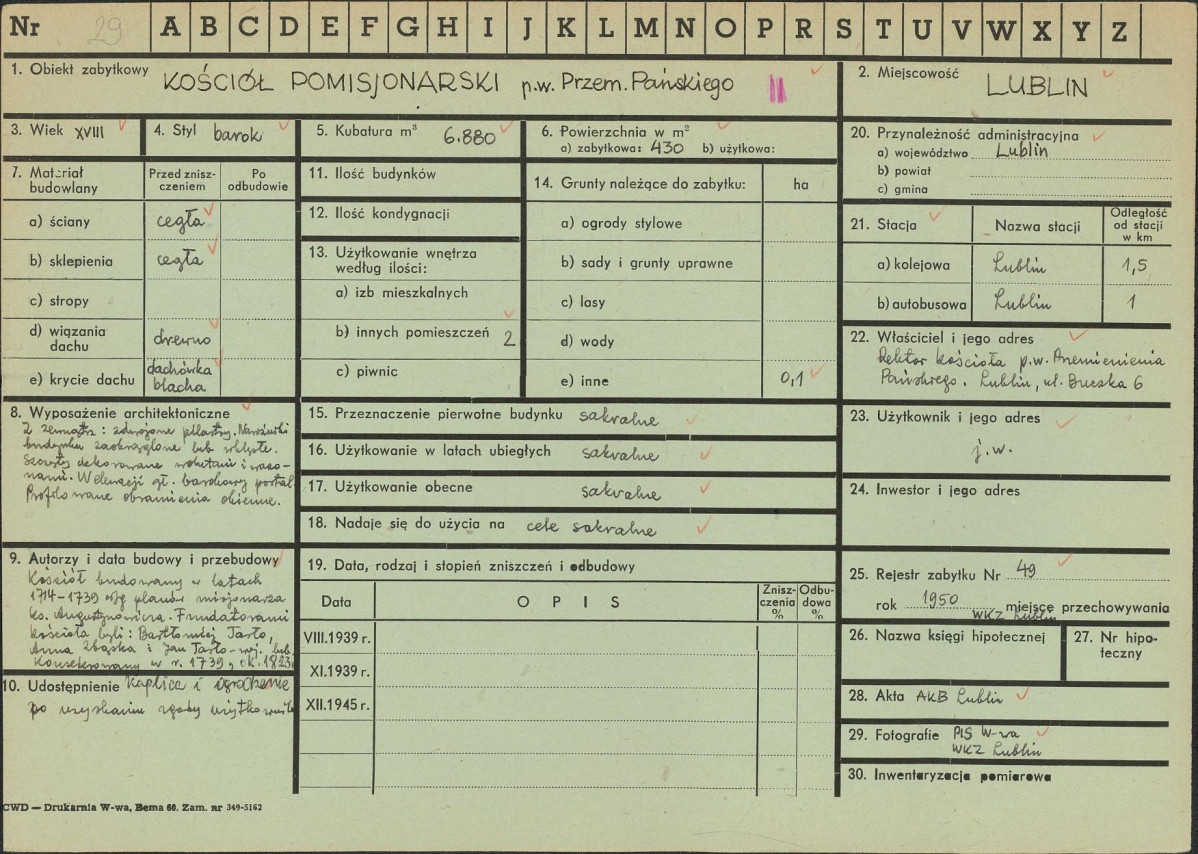 Nr 29 A B C D E F G H I J K L M N O P R S T U V W X Y Z
1. Obiekt zabytkowy KOŚCIÓŁ POMISJONARSKI p.w. Przem. Pańskiego II
2. Miejscowość LUBLIN
3. Wiek XVIII
4. Styl barok
5. Kubatura m³ 6.880
6. Powierzchnia w m²
a) zabytkowa: 430 b) użytkowa:
7. Materiał budowlany
Przed zniszczeniem
Po odbudowie
a) ściany cegła
b) sklepienia cegła
c) stropy
d) wiązania dachu drewno
e) krycie dachu dachówka blacha
8. Wyposażenie architektoniczne
Z zewnątrz: zdwojone pilastry. Narożniki
budynku zaokrąglone lub wklęsłe.
Szczyty dekorowane wolutami i wazo-
nami. W elewacji gł. barokowy portal.
Profilowane obramienia okienne.
9. Autorzy i data budowy i przebudowy
Kościół budowany w latach
1714-1739 wg planów misjonarza
ks. Augustynowicza. Fundatorami
kościoła byli: Bartłomiej Tarło,
Anna Zbąska i Jan Tarło - woj. lub.
Konsekrowany w r. 1739, ok. 1823
10. Udostępnienie Kaplica i ogrodzenie
po uzyskaniu zgody użytkownik
11. Ilość budynków
12. Ilość kondygnacji
13. Użytkowanie wnętrza
według ilości:
a) izb mieszkalnych
b) innych pomieszczeń 2
c) piwnic
14. Grunty należące do zabytku: ha
a) ogrody stylowe
b) sady i grunty uprawne
c) lasy
d) wody
e) inne 0,1
15. Przeznaczenie pierwotne budynku sakralne
16. Użytkowanie w latach ubiegłych sakralne
17. Użytkowanie obecne sakralne
18. Nadaje się do użycia na cele sakralne
19. Data, rodzaj i stopień zniszczeń i odbudowy
Data
OPIS
Zniszczenia %
Odbudowa %
VIII.1939 r.
XI.1939 r.
XII.1945 r.
20. Przynależność administracyjna
a) województwo Lublin
b) powiat
c) gmina
21. Stacja
Nazwa stacji
Odległość
od stacji
w km
a) kolejowa Lublin 1,5
b) autobusowa Lublin 1
22. Właściciel i jego adres
Rektor kościoła p.w. Przemienienia
Pańskiego. Lublin, ul. Buczka 6
23. Użytkownik i jego adres
j.w.
24. Inwestor i jego adres
25. Rejestr zabytku Nr 49
rok 1950 miejsce przechowywania
WKZ Lublin
26. Nazwa księgi hipotecznej
27. Nr hipo-
teczny
28. Akta AKB Lublin
29. Fotografie PIS W-wa
WKZ Lublin
30. Inwentaryzacja pomiarowa
CWD — Drukarnia W-wa, Bema 60. Zam. nr 349-5162